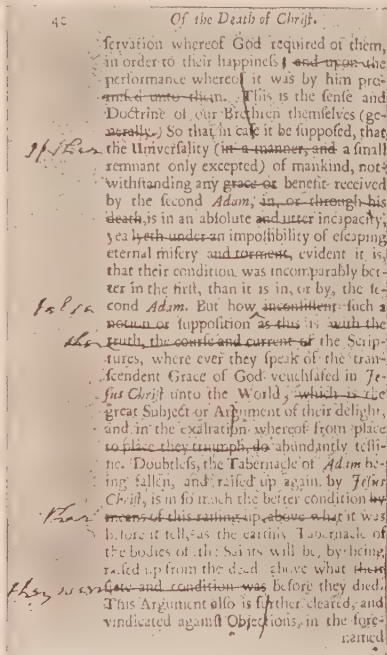 40 Of the Death of Christ.
servation whereof God required of them,
in order to their happiness; and upon the
performance whereof it was by him pro-
unto them. This is the sense and
Doctrine of our Brethren themselves (ge-
nerally.) So that in case it be supposed, that
the Universality (in a manner, and a small
remnant only excepted) of mankind, not-
withstanding any grace or benefit received
by the second Adam, in, or through his
death, is in an absolute and utter incapacity,
yea lyeth under an impossibility of escaping
eternal misery and torment, evident it is,
that their condition was incomparably bet-
ter in the first, than it is in, or by, the se-
cond Adam. But how inconsistent such a
notion or supposition as this is with the
truth, the course and current of the Scrip-
tures, where ever they speak of the tran-
scendent Grace of God vouchsafed in Je-
sus Christ unto the World, which is the
great Subject or Argument of their delight,
and in the exaltation whereof from place
to place they triumph, do abundantly testi-
fie. Doubtless, the Tabernacle of Adam be-
ing fallen, and raised up again by Jesus
Christ, is in so much the better condition by
than
means of this raising up, above what it was
before it fell, as the earthly Tabernacle of
the bodies of the Saints will be, by being
raised up from the dead above what their
they were
state and condition was before they died.
This Argument also is further cleared, and
vindicated against Objections, in the fore-
named